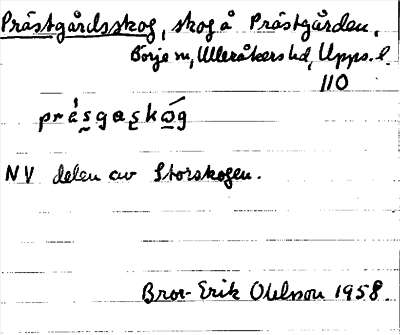 Prästgårdsskog, skog å Prästgården.
Börje sn, Ulleråkers hd, Upps. l.
110
NV delen av Storskogen.
Bror-Erik Ohlsson 1958.